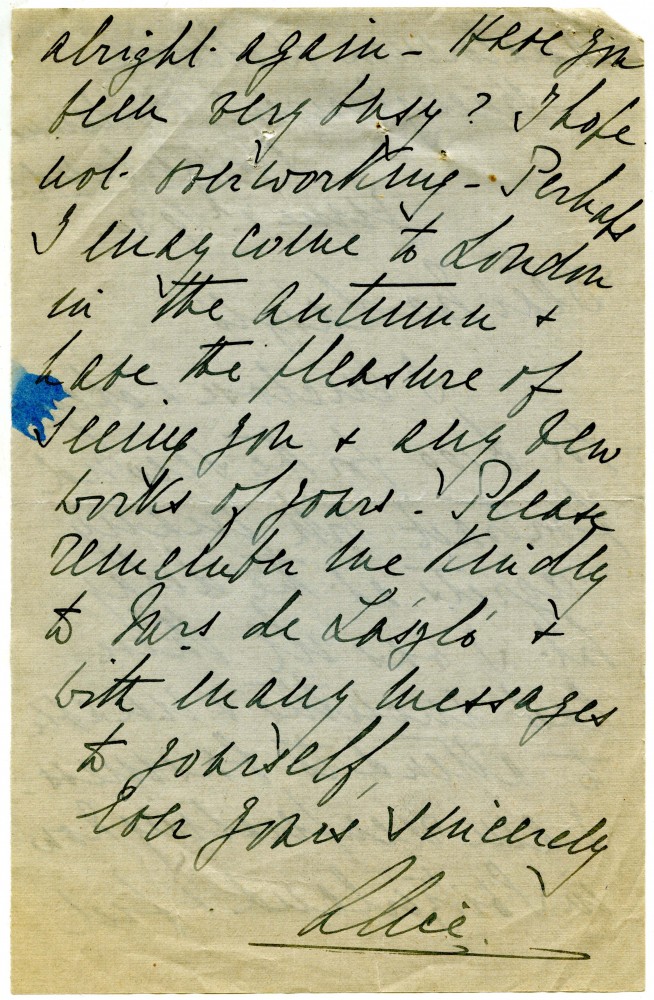 alright again - Have you
been very busy? I hope
not overworking - Perhaps
I may come to London
in the autumn &
have the pleasure of
seeing you & any new
works of yours. Please
remember me kindly
to Mrs de László &
with many messages
to yourself,
Ever yours sincerely
Alice.